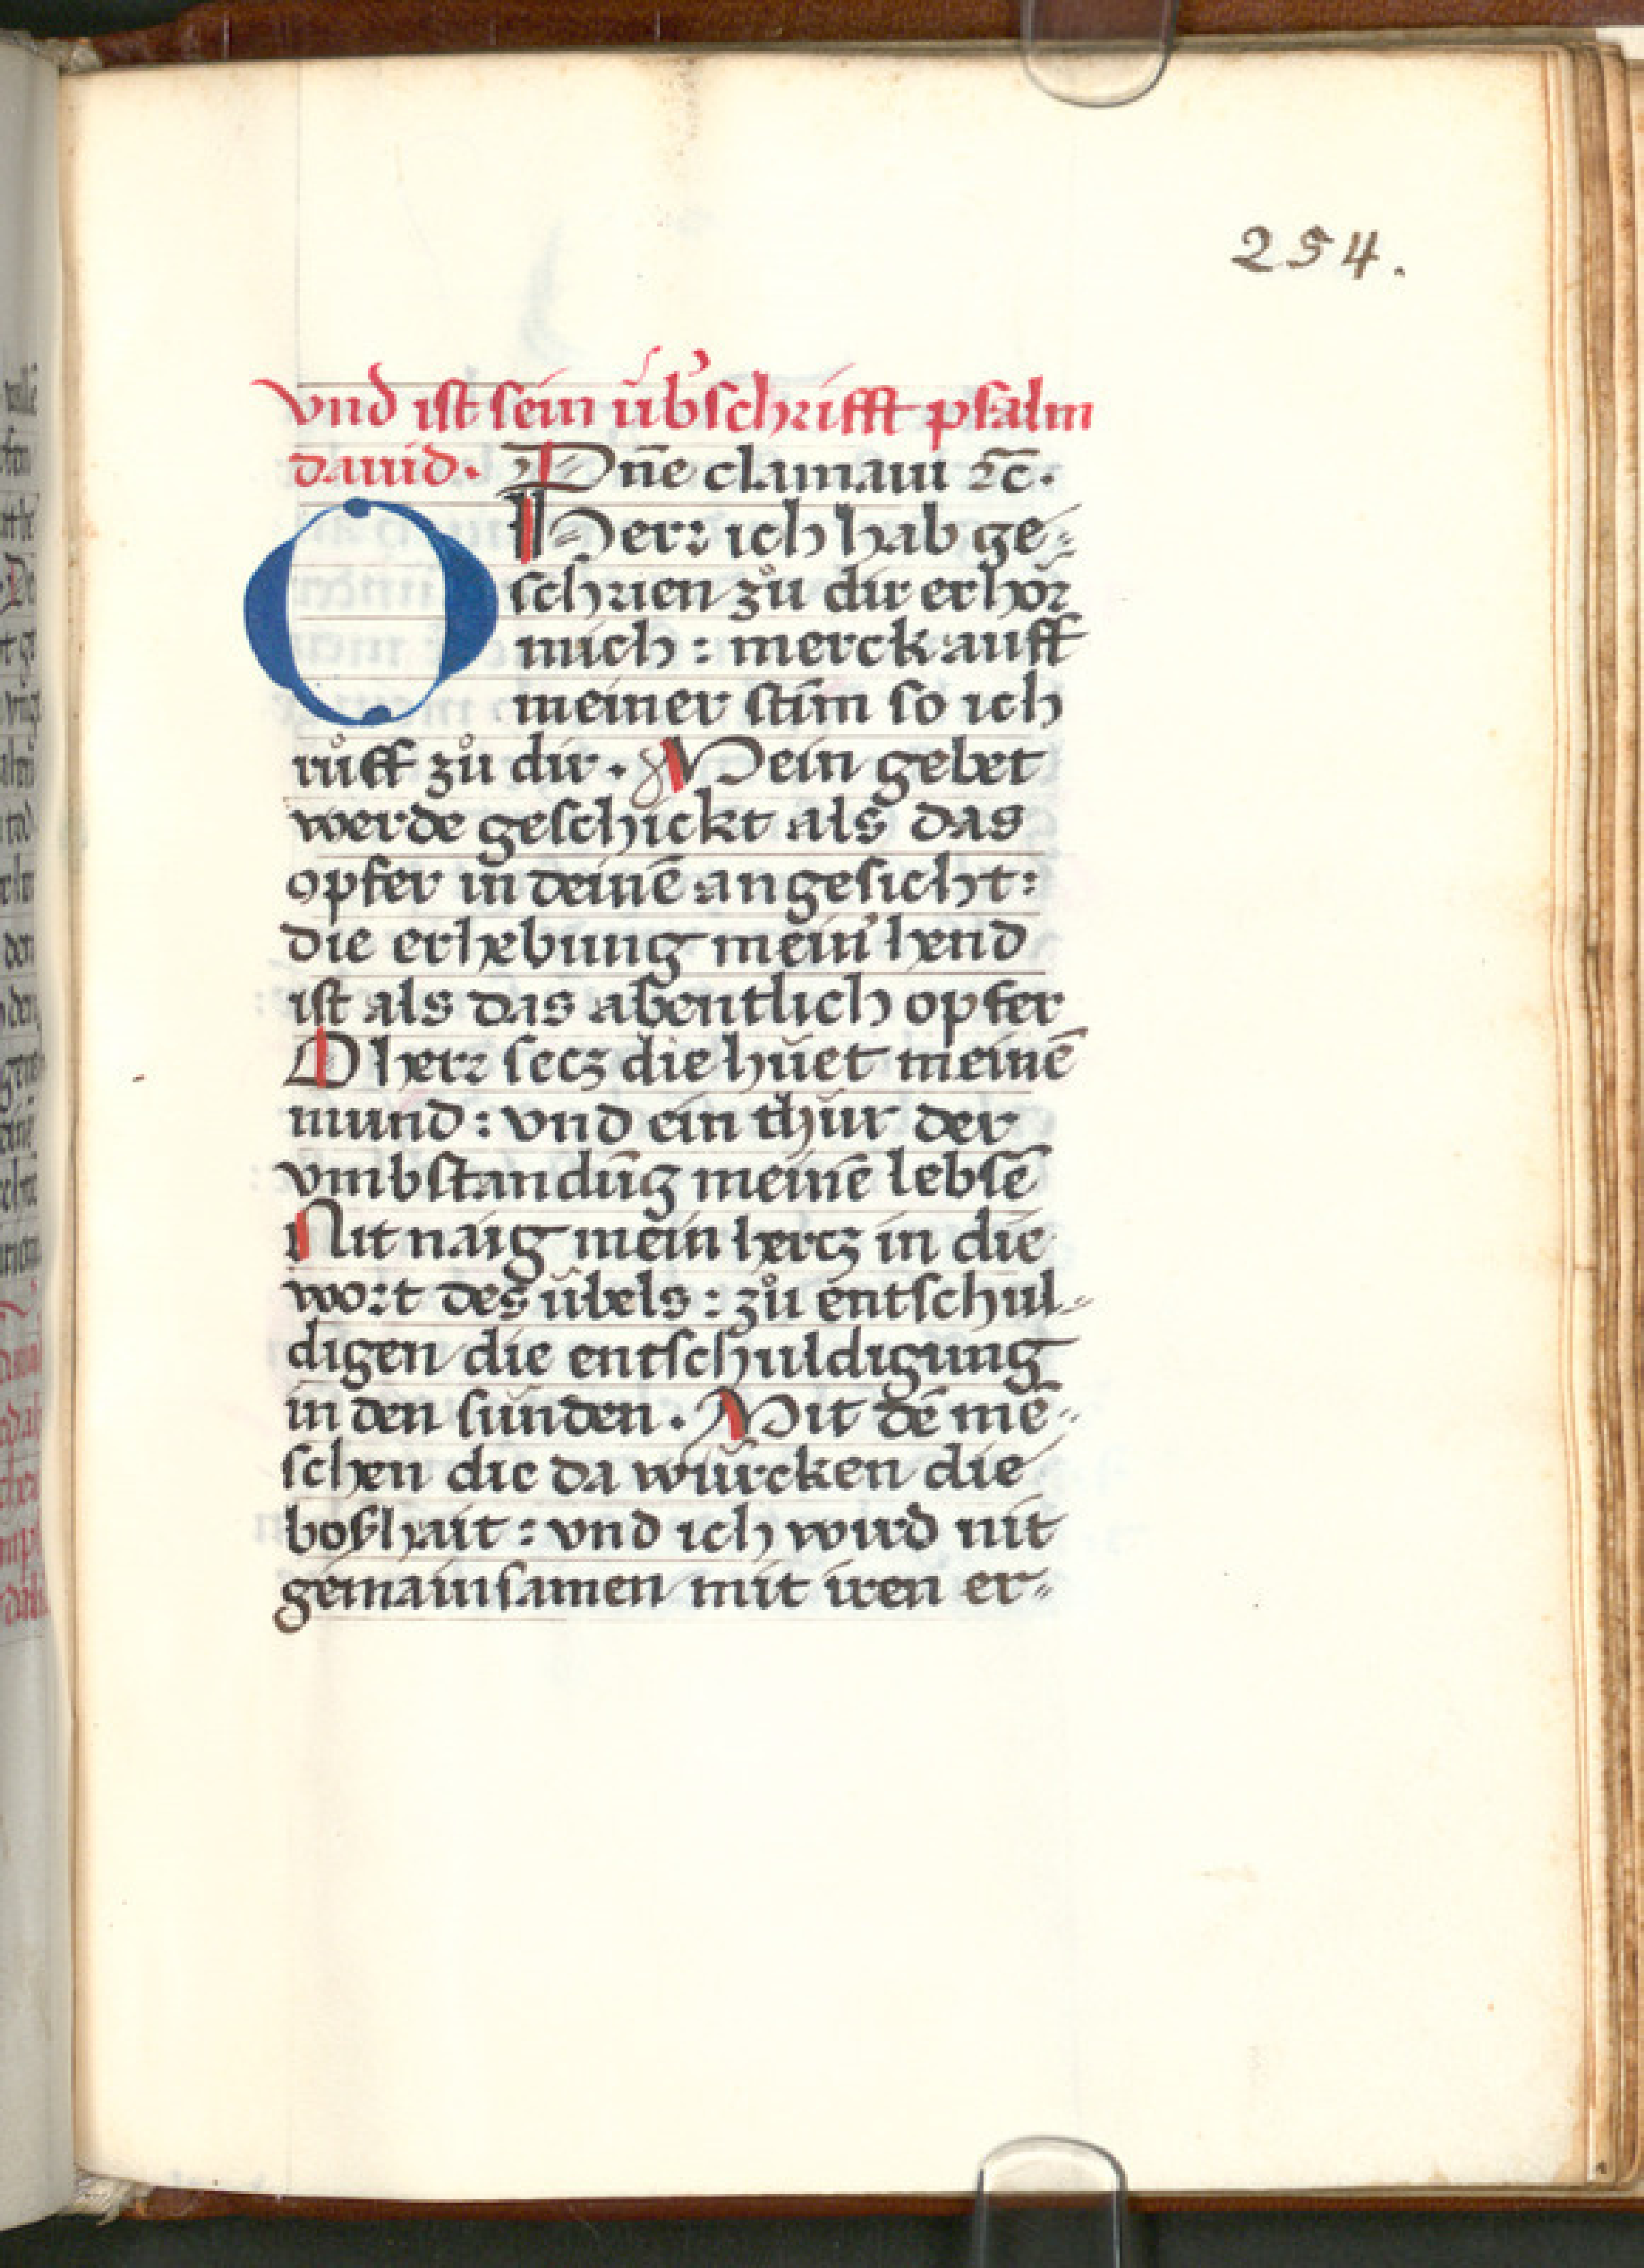 254.
vnd ist sein ub̾schrifft psalm
dauid. Dn̄e clamaui ⁊c̄.
O Herr ich hab ge⸗
schrien zů dir erhör
mich : merck auff
meiner stim̄ so ich
růff zů dir. Mein gebet
werde geschickt als das
opfer in deinē angesicht:
die erhebung mein̾ hend
ist als das abentlich opfer
O herr secz die hüet meinē
mund : vnd ein thür der
vmbstandūg meinē lebsē
Nit naig mein hercz in die
wort des übels : zů entschul⸗
digen die entschuldigung
in den sünden. Mit dē mē⸗
schen die da würcken die
boßhait : vnd ich wird nit
gemainsamen mit iren er⸗